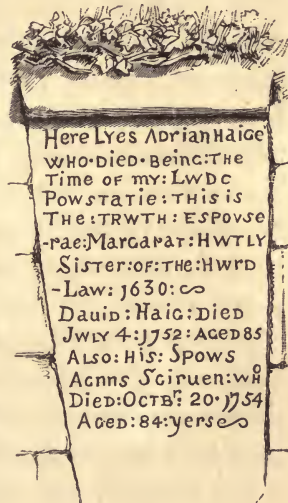 Here Lyes Adrian Haige
WHO·DIED·Being:THE
Time of my: LWDC
Powstatie: THis is
THe: TRWTH: Espovse
-rae: Margarat: HWTLY
Sister: OF: THE: HWRD
-Law: 1630:
Dauid: Haig: Died
JWLY 4: 1752: AGED 85
Also: His: Spows
Agnns Sciruen: WHO
Died: OCTBr: 20· 1754
Aged: 84: yers